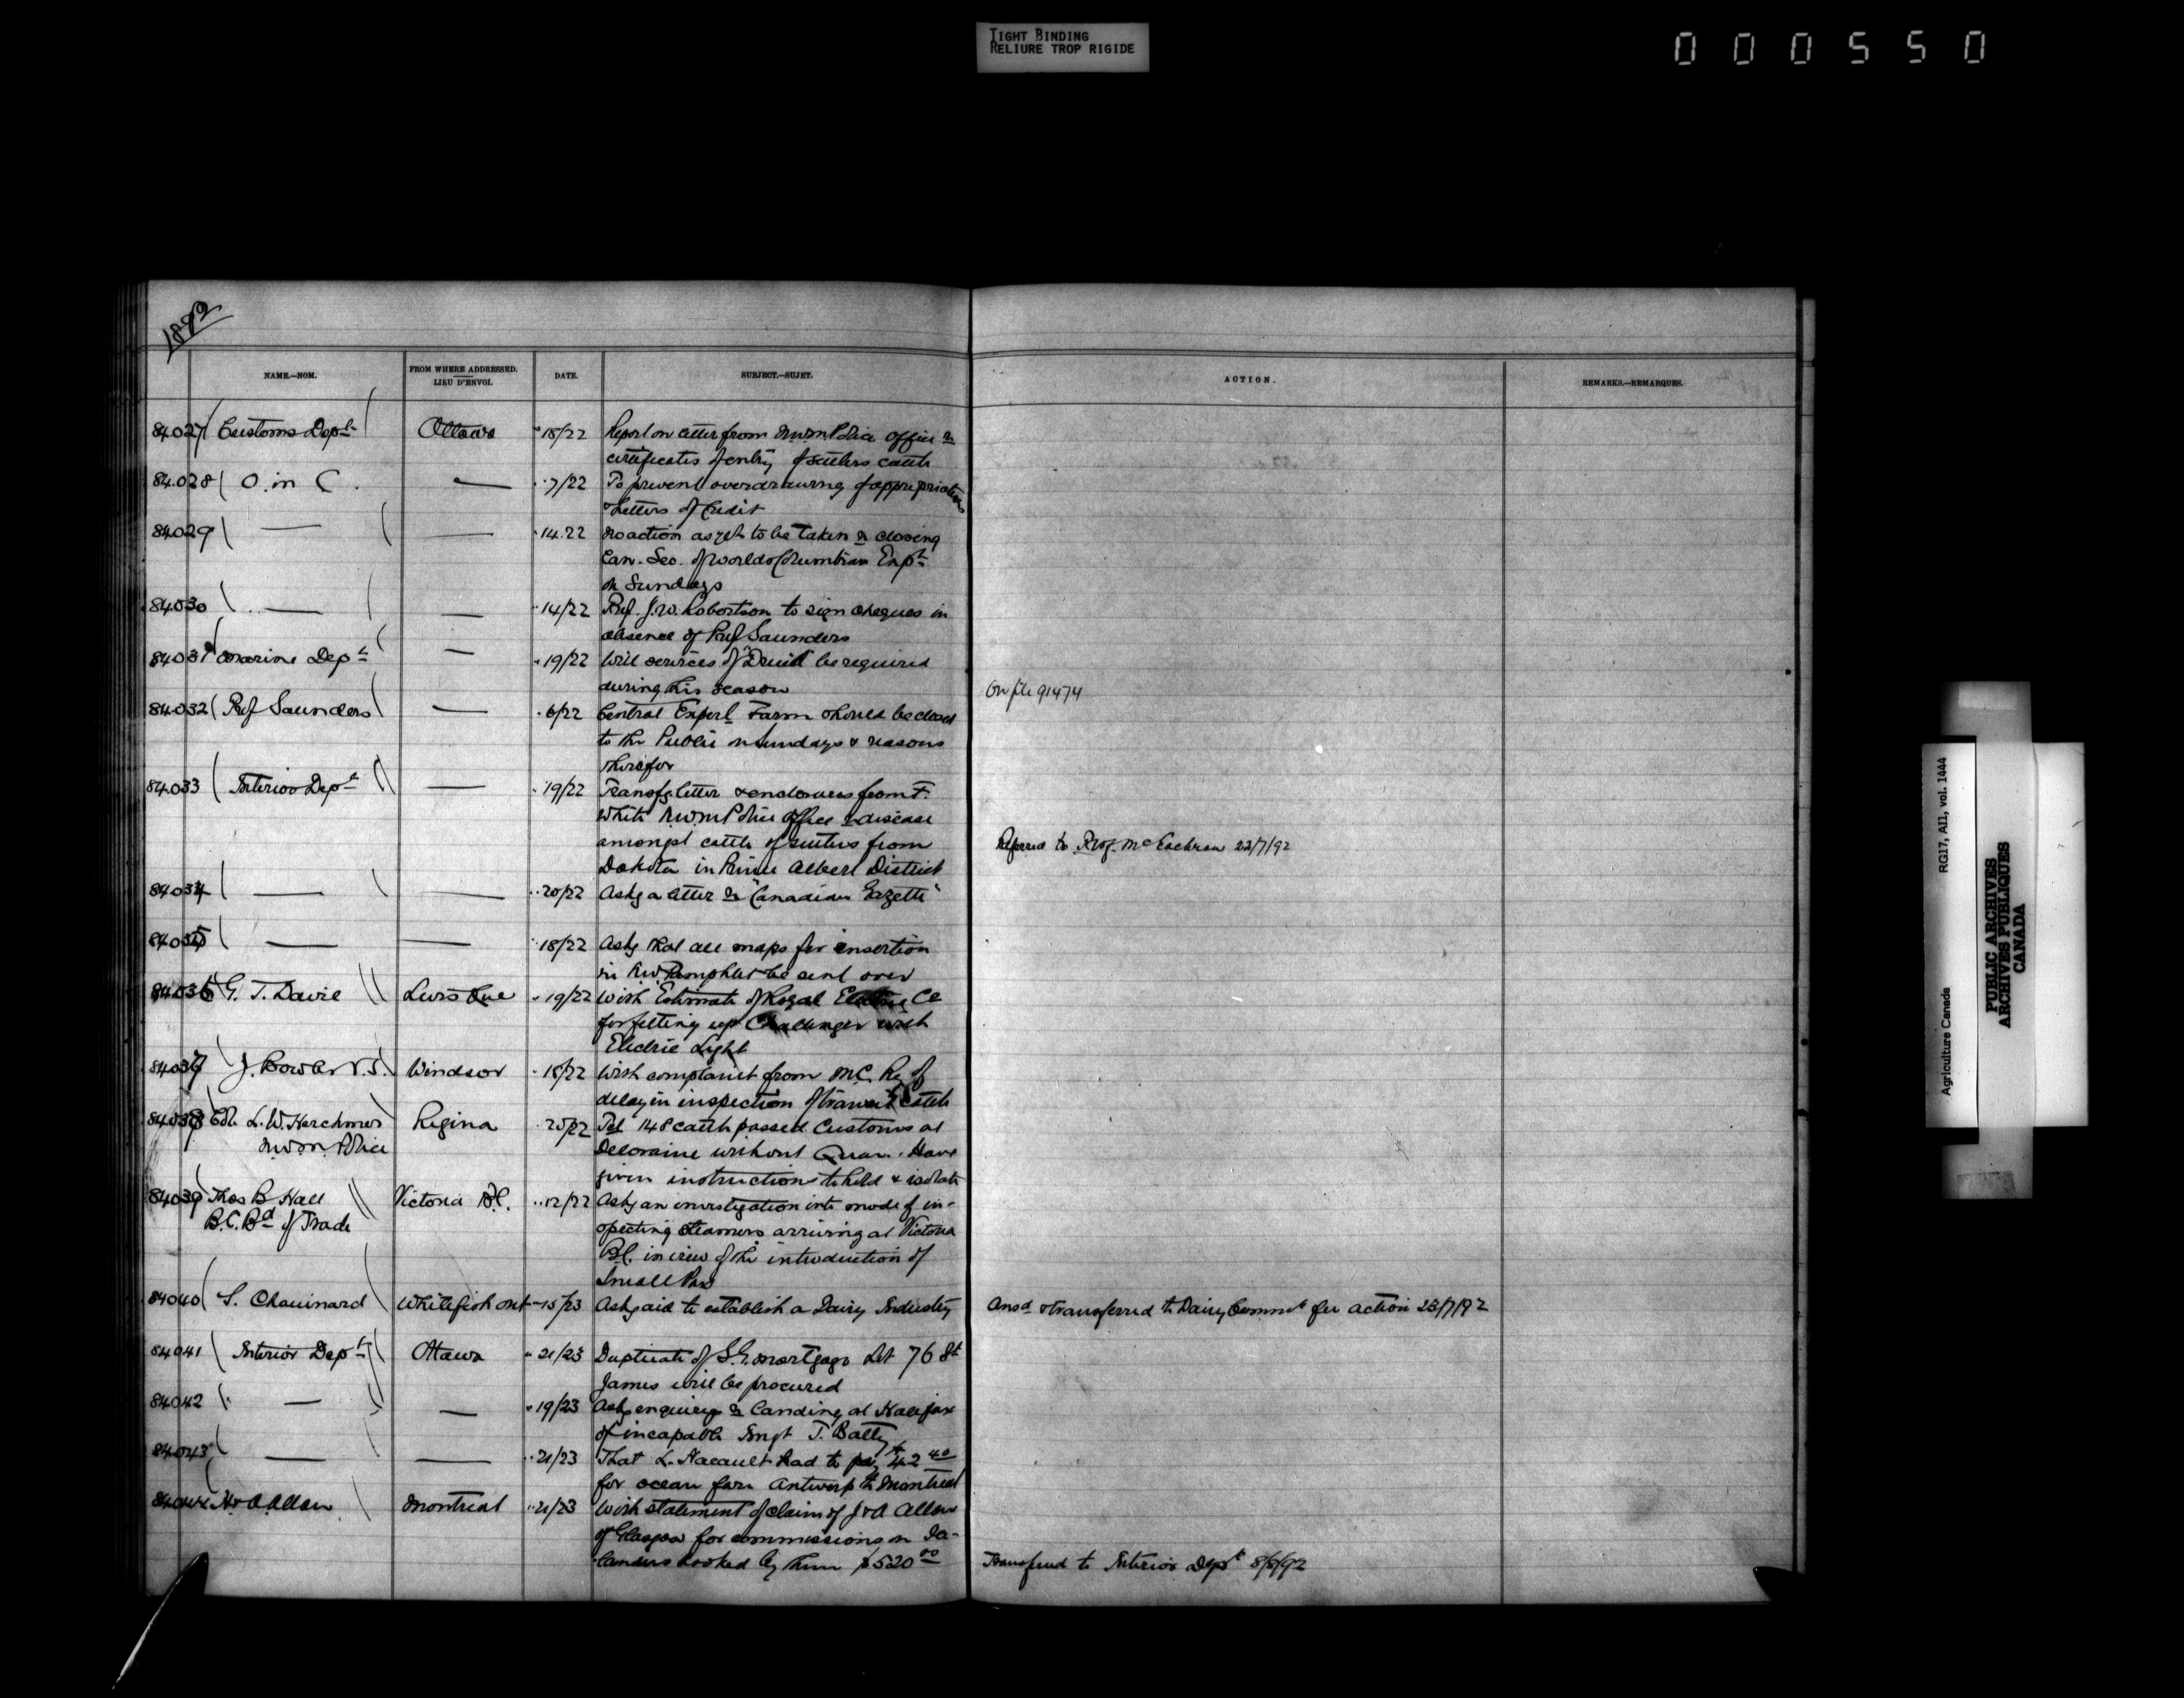 TIGHT BINDING
RELIURE TROP RIGIDE
000550
1892
NAME.—NOM.
FROM WHERE ADDRESSED.
LIEU D'ENVOI.
DATE.
SUBJECT.—SUJET.
ACTION.
REMARKS.—REMARQUES.
84027 Customs Dept Ottawa " 18/22 Report on letter from N.W.M Police Office re
certificates of entry of settlers cattle
84.028 O. in C. — " 7/22 To prevent overdrawing of appropriations
& Letters of Credit
84029 — — " 14.22 No action as yet to be taken re closing
Can. Sec. of Worlds Columbian Expn
on Sundays
84030 — — " 14/22 Prof. J.W. Robertson to sign cheques in
absence of Prof Saunders
84031 Marine Dept — " 19/22 Will services of "Druid" be required
during this season
On file 91474
84032 Prof Saunders — " 6/22 Central Experl Farm should be closed
to the Public on Sundays & reasons
therefor
84033 Interior Dept — " 19/22 Transfg letter & enclosures from F.
White N.W.M Police Office re disease
amongst cattle of settlers from
Dakota in Prince Albert District
Referred to Prof. McEachran 22/7/92
84034 — — " 20/22 Askg a letter re "Canadian Gazette"
84035 — — " 18/22 Askg that all maps for insertion
in N.W. Pamphlet be sent over
84036 G. T. Davie Levis Que " 19/22 With Estimate of Royal Electric Co
for fitting up Challenger with
Electric Light
84037 J. Bowler V.S. Windsor " 18/22 With complaint from M.C. Ry of
delay in inspection of transit cattle
84038 Col. L. W. Herchmer Regina " 20/22 Tel 148 cattle passed Customs at
N.W.M. Police
Deloraine without Quar. Have
given instructions to hold & isolate
84039 Thos B Hall Victoria B.C. " 12/22 Askg an investigation into mode of in-
B.C. Bd of Trade
specting steamers arriving at Victoria
B.C. in view of the introduction of
Small Pox
84040 S. Chouinard Whitefish Ont " 15/23 Askg aid to establish a Dairy Industry
Ansd & transferred to Dairy Commr for action 23/7/92
84041 Interior Dept Ottawa " 21/23 Duplicate of S.G. mortgage Lot 76 St
James will be procured
84042 — — " 19/23 Askg enquiry re landing at Halifax
of incapable Imgt T. Batty
84043 — — " 21/23 That L. Hacault had to pay $42 40
for ocean fare Antwerp to Montreal
84044 H & A Allan Montreal " 21/23 With statement of claim of J & A Allan
of Glasgow for commissions on Ice-
landers booked by them $520 00
Transferred to Interior Dept 8/8/92
Agriculture Canada
RG17, AII, vol. 1444
PUBLIC ARCHIVES
ARCHIVES PUBLIQUES
CANADA